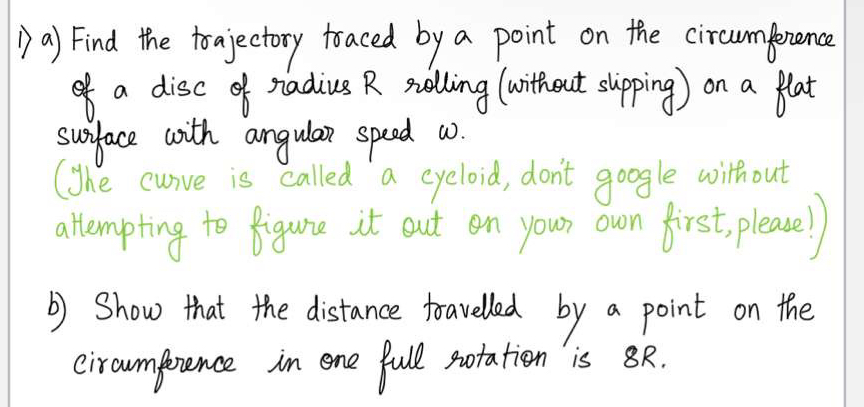 1) a) Find the trajectory traced by a point on the circumference
of a disc of radius R rolling (without slipping) on a flat
surface with angular speed ω.
(The curve is called a cycloid, don't google without
attempting to figure it out on your own first, please!)
b) Show that the distance travelled by a point on the
circumference in one full rotation is 8R.